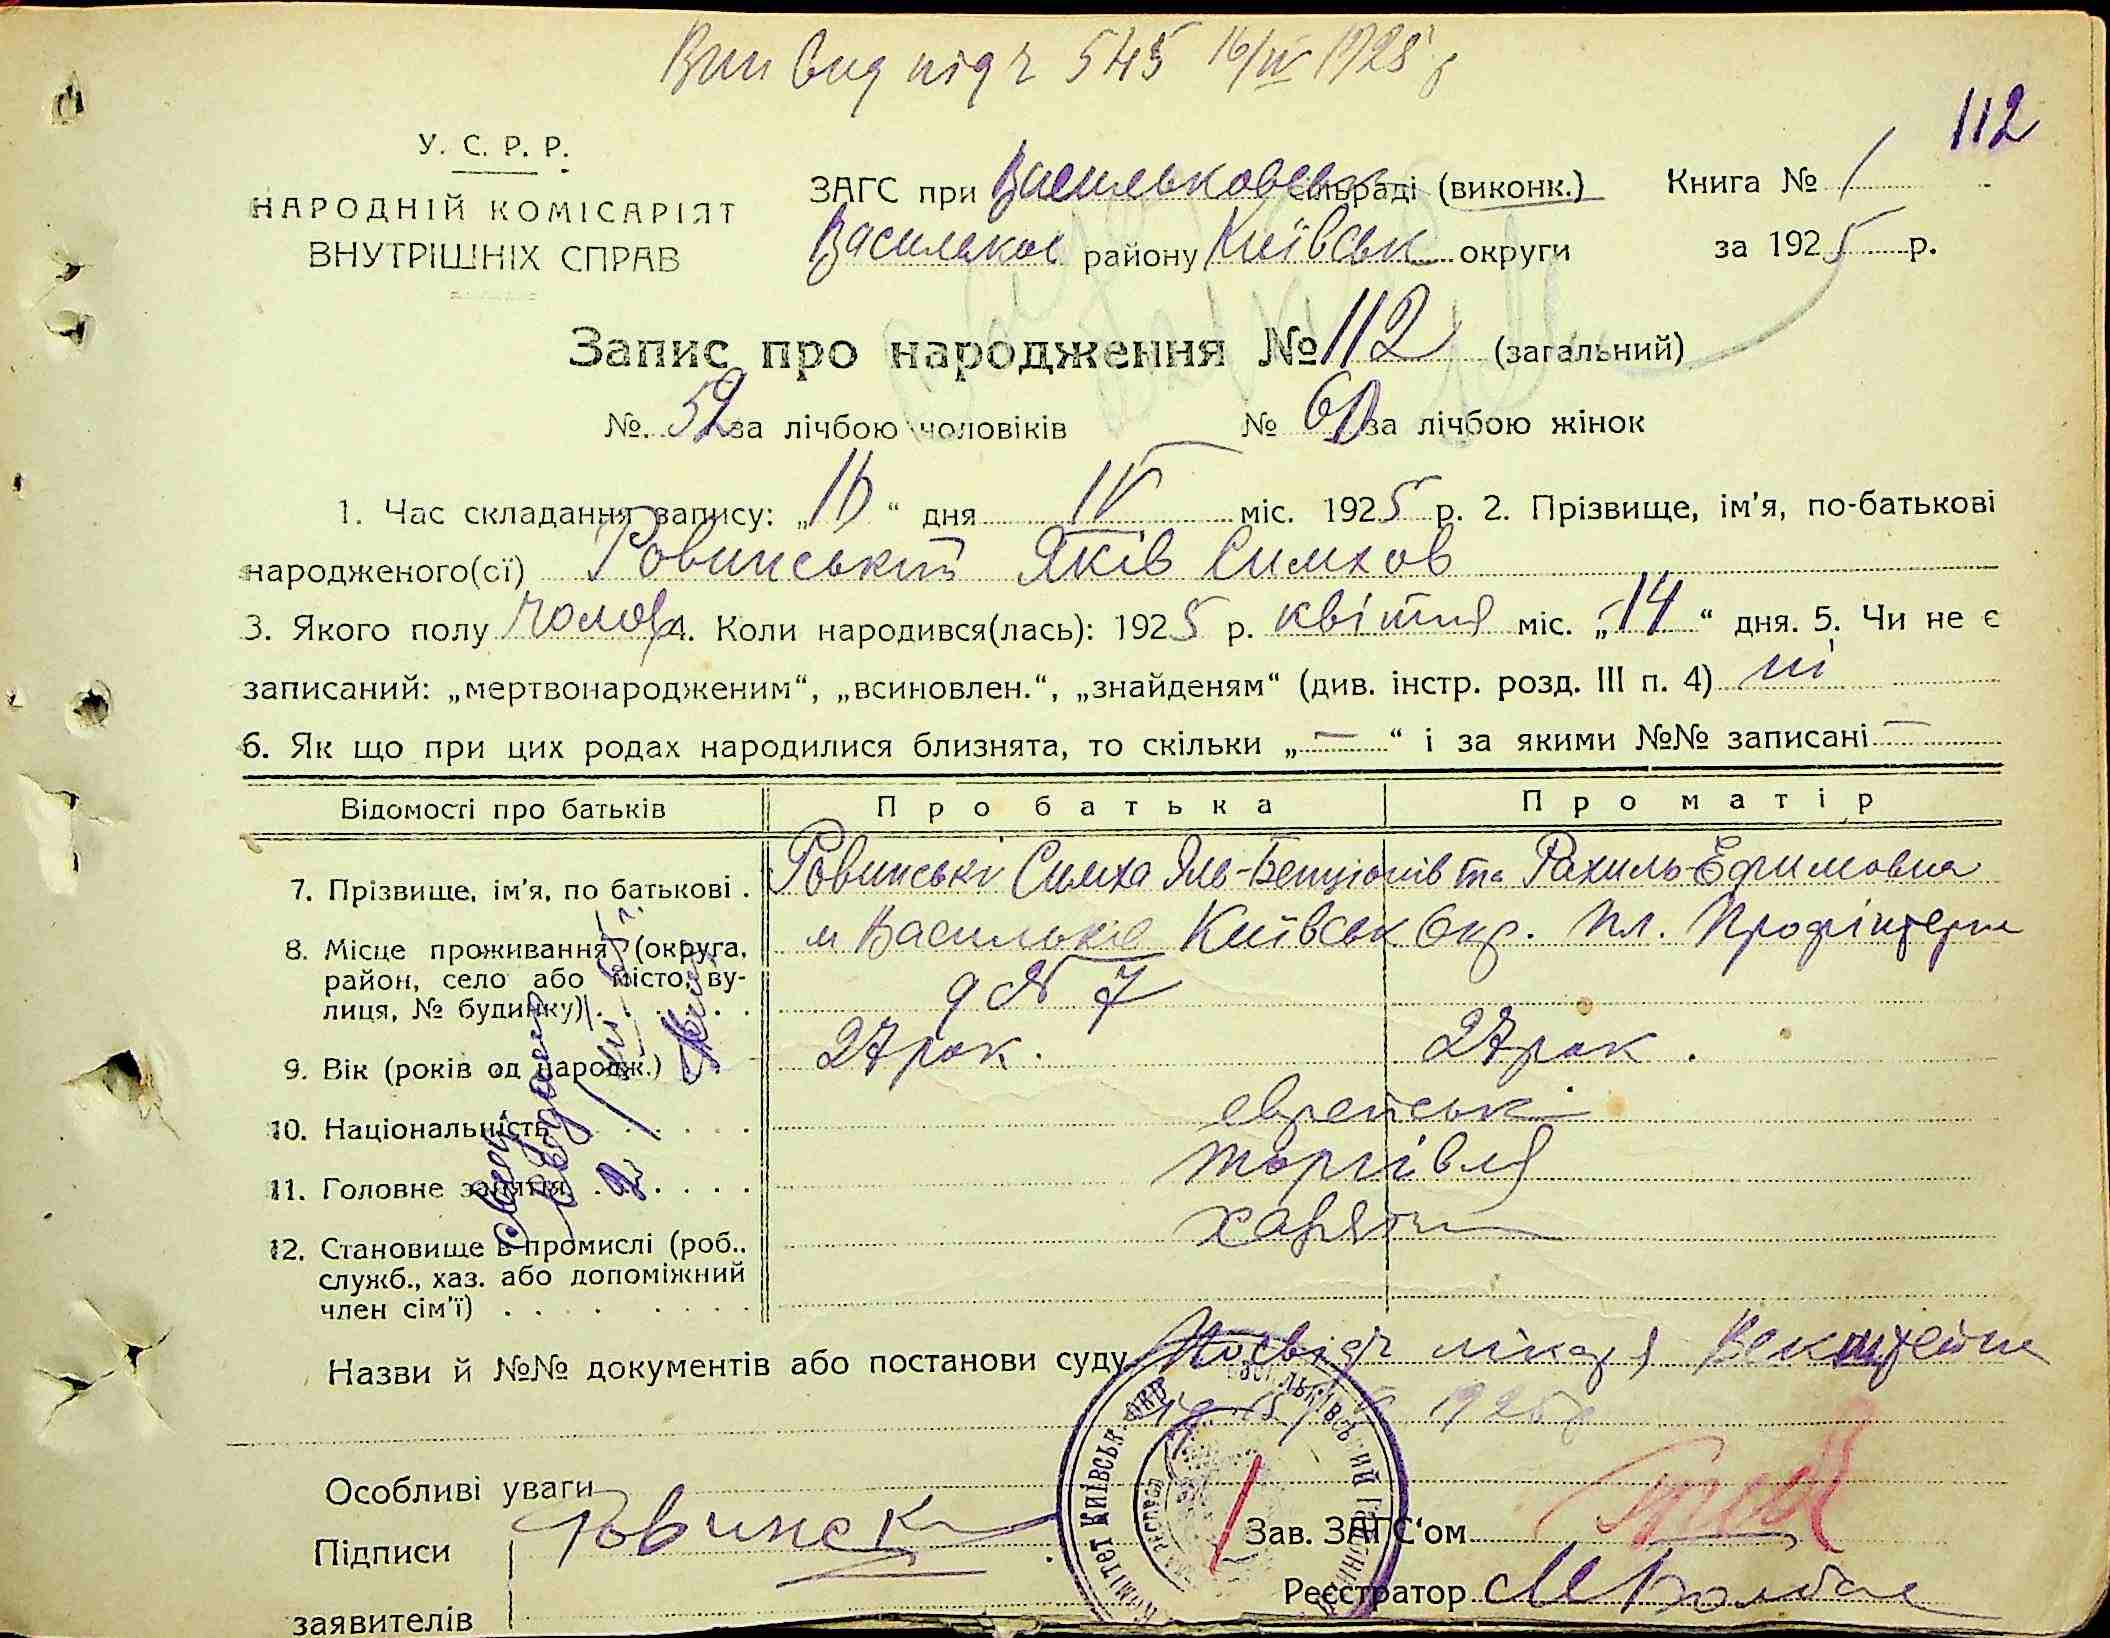 Вип вид під ч 545 16/IV 1928 р
112
У. С. Р. Р.
НАРОДНІЙ КОМІСАРІЯТ
ВНУТРІШНІХ СПРАВ
ЗАГС при Васильковськ сільраді (виконк.) Книга № 1
Васильков району Київськ округи за 1925 р.
Запис про народження № 112 (загальний)
№ 52 за лічбою чоловіків № 60 за лічбою жінок
1. Час складання запису: „16“ дня IV міс. 1925 р. 2. Прізвище, ім'я, по-батькові
народженого(сї) Ровинський Яків Симхов
3. Якого полу чолов 4. Коли народився(лась): 1925 р. квітня міс. „14“ дня. 5. Чи не є
записаний: „мертвонародженим“, „всиновлен.“, „знайденям“ (див. інстр. розд. III п. 4) ні
6. Як що при цих родах народилися близнята, то скільки „—“ і за якими №№ записані —
Відомості про батьків Про батька Про матір
7. Прізвище, ім'я, по батькові . Ровинські Симха Яль-Бенціонів та Рахиль Ефимовна
8. Місце проживання (округа, район, село або місто, вулиця, № будинку) м Васильків Київськ Окр. пл. Профінтерна
д № 7
9. Вік (років од народж.) 27 рок. 27 рок.
10. Національність еврейські
11. Головне заняття торгівля
12. Становище в промислі (роб.,
служб., хаз. або допоміжний
член сім'ї)
Назви й №№ документів або постанови суду Посвідч лікаря Векштейна
від 15/IV 1925 р
Особливі уваги
Підписи Ровинск Зав. ЗАГС'ом
заявителів Реєстратор